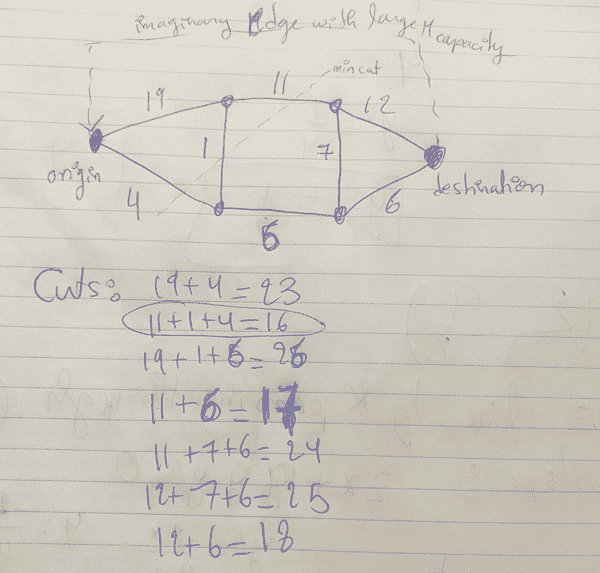 imaginary Edge with large M
capacity
min cut
19
11
12
1
7
origin
destination
4
6
Cuts:
19+4=23
11+1+4=16
11+6=17
11+7+6=24
12+7+6=25
12+6=18